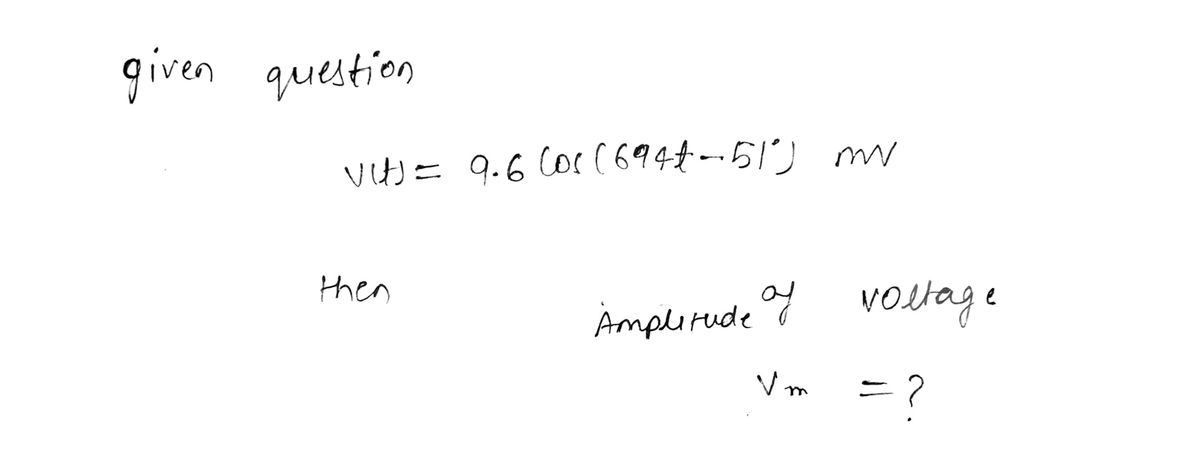 given question
v(t) = 9.6 Cos (694t - 51°) mV
then Amplitude of voltage
Vm = ?